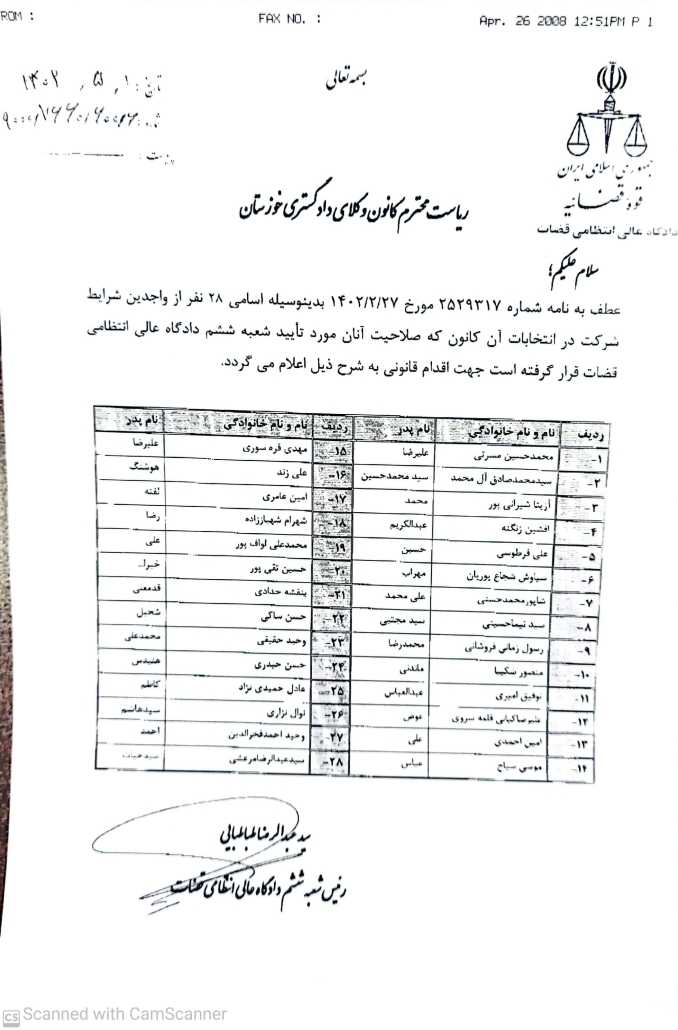 ROM :
FAX NO. :
Apr. 26 2008 12:51PM P 1
بسمه تعالی
تاریخ: ۱۴۰۲/۵/۱
جمهوری اسلامی ایران
قوه قضائیه
دادگاه عالی انتظامی قضات
ریاست محترم کانون وکلای دادگستری خوزستان
سلام علیکم؛
عطف به نامه شماره ۲۵۲۹۳۱۷ مورخ ۱۴۰۲/۲/۲۷ بدینوسیله اسامی ۲۸ نفر از واجدین شرایط
شرکت در انتخابات آن کانون که صلاحیت آنان مورد تأیید شعبه ششم دادگاه عالی انتظامی
قضات قرار گرفته است جهت اقدام قانونی به شرح ذیل اعلام می گردد.
ردیف نام و نام خانوادگی نام پدر ردیف نام و نام خانوادگی نام پدر
۱- محمدحسین مسرتی علیرضا ۱۵- مهدی قره سوری علیرضا
۲- سیدمحمدصادق آل محمد سید محمدحسین ۱۶- علی زند هوشنگ
۳- آزیتا شیرانی پور محمد ۱۷- امین عامری لفته
۴- افشین زنگنه عبدالکریم ۱۸- شهرام شهباززاده رضا
۵- علی فرطوسی حسین ۱۹- محمدعلی لواف پور علی
۶- سیاوش شجاع پوریان مهراب ۲۰- حسین تقی پور
۷- شاپورمحمدحسنی علی محمد ۲۱- بنفشه حدادی قدمعلی
۸- سید نیماحسینی سید مجتبی ۲۲- حسن ساکی
۹- رسول زمانی فروشانی محمدرضا ۲۳- وحید حقیقی محمدعلی
۱۰- منصور شکیبا ماندنی ۲۴- حسن حیدری
۱۱- توفیق امیری عبدالعباس ۲۵- عادل حمیدی نژاد کاظم
۱۲- علیرضاکیانی قلعه سروی عوض ۲۶- نوال نزاری سیدهاشم
۱۳- امین احمدی علی ۲۷- وحید احمدفخرالدین احمد
۱۴- موسی سیاح عباس ۲۸- سیدعبدالرضامرعشی
سید عبدالرضا طباطبایی
رئیس شعبه ششم دادگاه عالی انتظامی قضات
CS Scanned with CamScanner